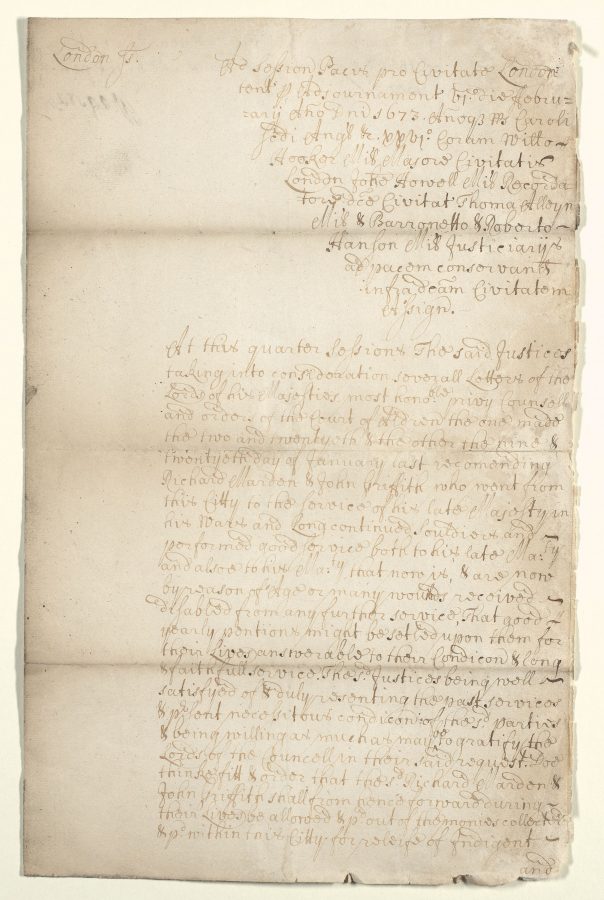 London ss.
Ad session Pacis pro Civitate London
tent p Adjournament vi:o die Februa-
rarij Año Dni 1673. Añoq3 Rs Caroli
scdi Angl &c. xxvi:o Coram Willo
Hooker Mil Maiore Civitatis
London Johe Howell Mil Recorda
tore dce Civitat Thoma Alleyn
Mil & Barronetto & Roberto
Hanson Mil Justiciarijs
ad pacem conservand
infra dcam Civitatem
Assign.
At this quarter sessions The said Justices
taking into consideration severall Letters of the
Lords of his Majesties most hono:ble privy Counsell
and orders of the Court of Aldren the one made
the two and twentyeth & the other the nine &
twentyeth day of January last recomending
Richard Marden & John Griffith who went from
this Citty to the service of his late Majesty in
his Wars and Long continued Souldiers and
performed good service both to his late Ma:ty
and alsoe to his Ma:ty that now is, & are now
by reason of Age or many wounds received
disabled from any further service, That good
yearly pentions might be setled upon them for
their Lives answerable to their Condicon & long
& faithfull service. The sd Justices being well
satisfyed of & duly resenting the past services
& psent necessitous condicon of the sd parties
& being willing as much as may be to gratify the
Lords of the Councell in their said request. Doe
thinke fitt & order that the sd Richard Marden &
John Griffith shall from henceforward during
their Lives be allowed & pd out of the monies collected
& pd within this Citty for releife of Indigent
and